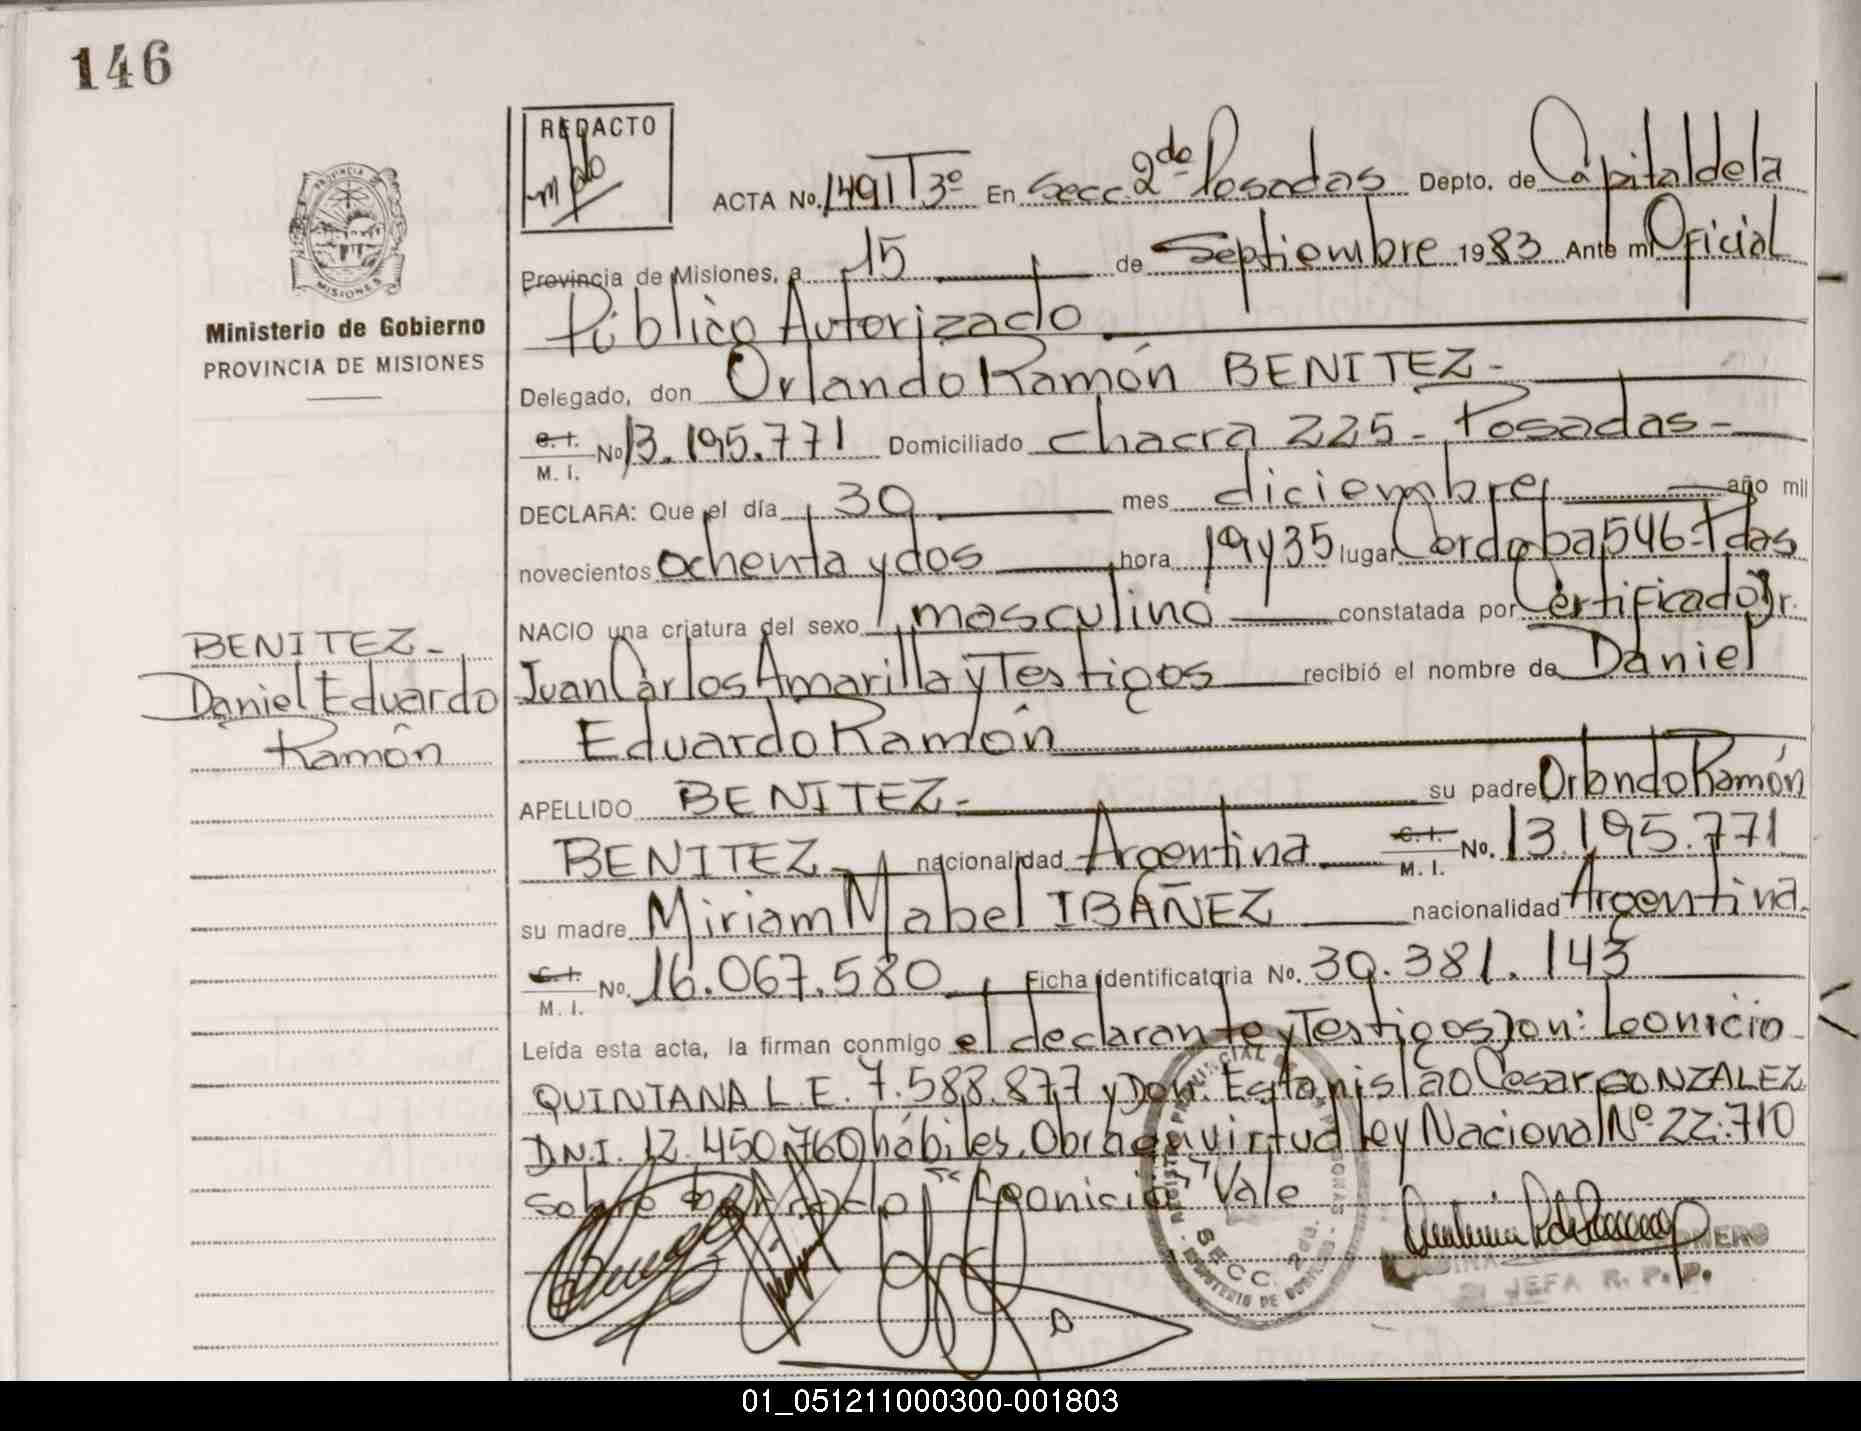 146
REDACTO
ACTA No. 1491 T 3º En Secc. 2da Posadas Depto. de Capital de la
Provincia de Misiones, a 15 de Septiembre 1983 Ante mi Oficial
Público Autorizado
Delegado, don Orlando Ramón BENITEZ.-
C. I.
M. I.
No 13.195.771 Domiciliado chacra 225 - Posadas -
DECLARA: Que el día 30 mes diciembre año mil
novecientos ochenta y dos hora 19 y 35 lugar Cordoba 546 - Pdas
NACIO una criatura del sexo masculino constatada por Certificado Dr.
Juan Carlos Amarilla y Testigos recibió el nombre de Daniel
Eduardo Ramón
APELLIDO BENITEZ.- su padre Orlando Ramón
BENITEZ nacionalidad Argentina C. I.
M. I. No. 13.195.771
su madre Miriam Mabel IBAÑEZ nacionalidad Argentina.
C. I.
M. I.
No. 16.067.580 Ficha identificatoria No. 30.381.143
Leída esta acta, la firman conmigo el declarante y Testigos Don: Leonicio
QUINTANA L.E. 7.588.877 y Don. Estanislao Cesar GONZALEZ
D.N.I. 12.450.760 hábiles. Obra en virtud ley Nacional Nº 22.710
Sobre borrado "Leonicio" Vale
MISIONES
Ministerio de Gobierno
PROVINCIA DE MISIONES
BENITEZ -
Daniel Eduardo
Ramón
SECC. 2da.
JEFA R. P. P.
01_051211000300-001803